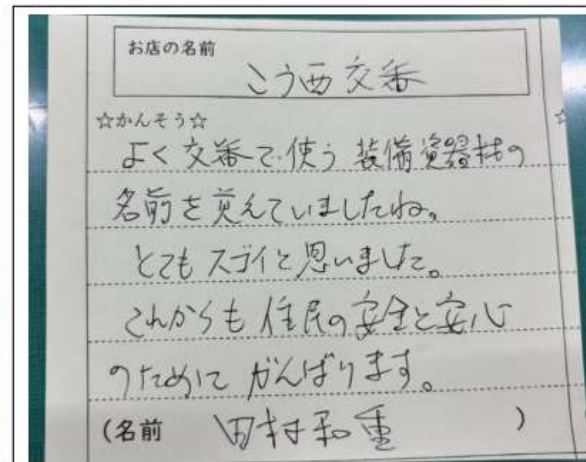 お店の名前
こう西交番
☆かんそう☆
よく交番で使う装備資器材の
名前を覚えていましたね。
とてもスゴイと思いました。
これからも住民の安全と安心
のために がんばります。
(名前 田村和重 )